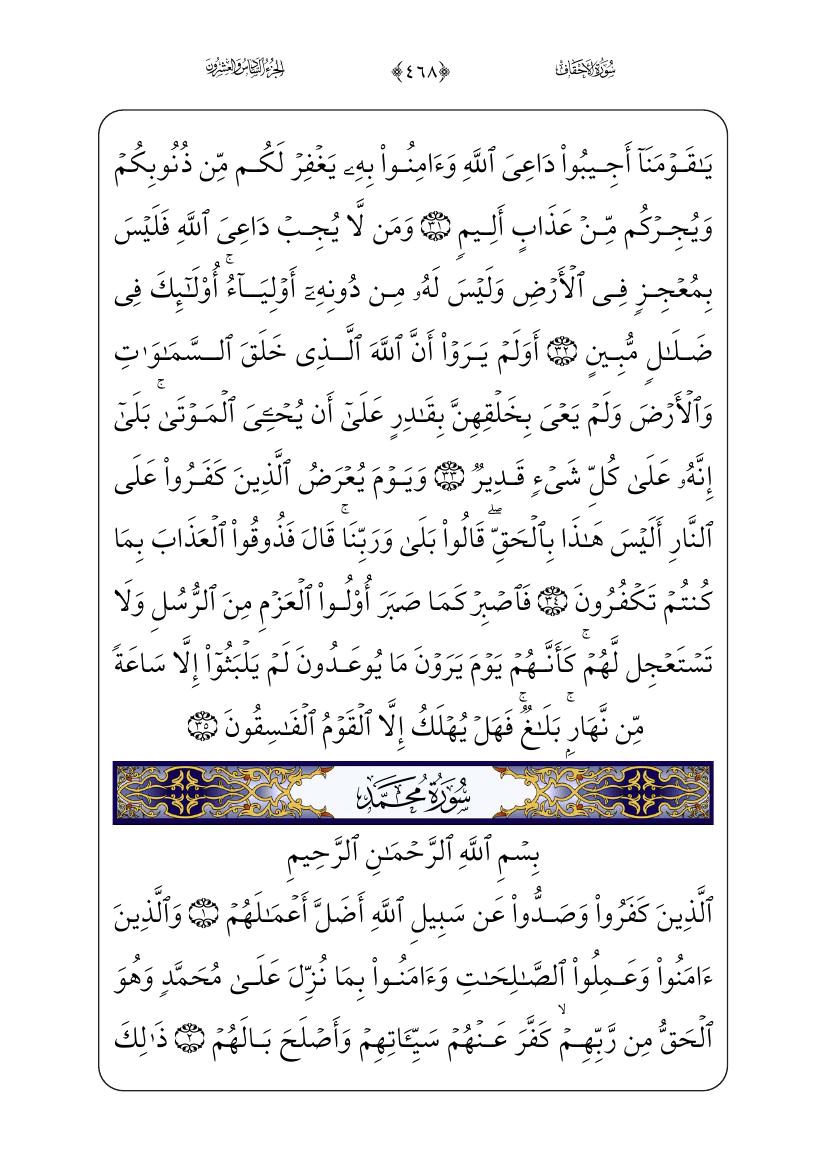 سُورَةُ الأَحْقَافِ
﴿٤٦٨﴾
الجُزءُ السَّادِسُ وَالعِشْرُونَ
يَـٰقَوۡمَنَآ أَجِيبُوا۟ دَاعِىَ ٱللَّهِ وَءَامِنُوا۟ بِهِۦ يَغۡفِرۡ لَكُم مِّن ذُنُوبِكُمۡ
وَيُجِرۡكُم مِّنۡ عَذَابٍ أَلِيمٍ ٣١ وَمَن لَّا يُجِبۡ دَاعِىَ ٱللَّهِ فَلَيۡسَ
بِمُعۡجِزٍ فِى ٱلۡأَرۡضِ وَلَيۡسَ لَهُۥ مِن دُونِهِۦٓ أَوۡلِيَآءُۚ أُو۟لَـٰٓئِكَ فِى
ضَلَـٰلٍ مُّبِينٍ ٣٢ أَوَلَمۡ يَرَوۡا۟ أَنَّ ٱللَّهَ ٱلَّذِى خَلَقَ ٱلسَّمَـٰوَٰتِ
وَٱلۡأَرۡضَ وَلَمۡ يَعۡىَ بِخَلۡقِهِنَّ بِقَـٰدِرٍ عَلَىٰٓ أَن يُحۡـِۧىَ ٱلۡمَوۡتَىٰۚ بَلَىٰٓ
إِنَّهُۥ عَلَىٰ كُلِّ شَىۡءٍ قَدِيرٌ ٣٣ وَيَوۡمَ يُعۡرَضُ ٱلَّذِينَ كَفَرُوا۟ عَلَى
ٱلنَّارِ أَلَيۡسَ هَـٰذَا بِٱلۡحَقِّۖ قَالُوا۟ بَلَىٰ وَرَبِّنَاۚ قَالَ فَذُوقُوا۟ ٱلۡعَذَابَ بِمَا
كُنتُمۡ تَكۡفُرُونَ ٣٤ فَٱصۡبِرۡ كَمَا صَبَرَ أُو۟لُوا۟ ٱلۡعَزۡمِ مِنَ ٱلرُّسُلِ وَلَا
تَسۡتَعۡجِل لَّهُمۡۚ كَأَنَّهُمۡ يَوۡمَ يَرَوۡنَ مَا يُوعَدُونَ لَمۡ يَلۡبَثُوٓا۟ إِلَّا سَاعَةً
مِّن نَّهَارِۭۚ بَلَـٰغٌۚ فَهَلۡ يُهۡلَكُ إِلَّا ٱلۡقَوۡمُ ٱلۡفَـٰسِقُونَ ٣٥
سُورَةُ مُحَمَّدٍ
بِسۡمِ ٱللَّهِ ٱلرَّحۡمَـٰنِ ٱلرَّحِيمِ
ٱلَّذِينَ كَفَرُوا۟ وَصَدُّوا۟ عَن سَبِيلِ ٱللَّهِ أَضَلَّ أَعۡمَـٰلَهُمۡ ١ وَٱلَّذِينَ
ءَامَنُوا۟ وَعَمِلُوا۟ ٱلصَّـٰلِحَـٰتِ وَءَامَنُوا۟ بِمَا نُزِّلَ عَلَىٰ مُحَمَّدٍ وَهُوَ
ٱلۡحَقُّ مِن رَّبِّهِمۡۙ كَفَّرَ عَنۡهُمۡ سَيِّـَٔاتِهِمۡ وَأَصۡلَحَ بَالَهُمۡ ٢ ذَٰلِكَ